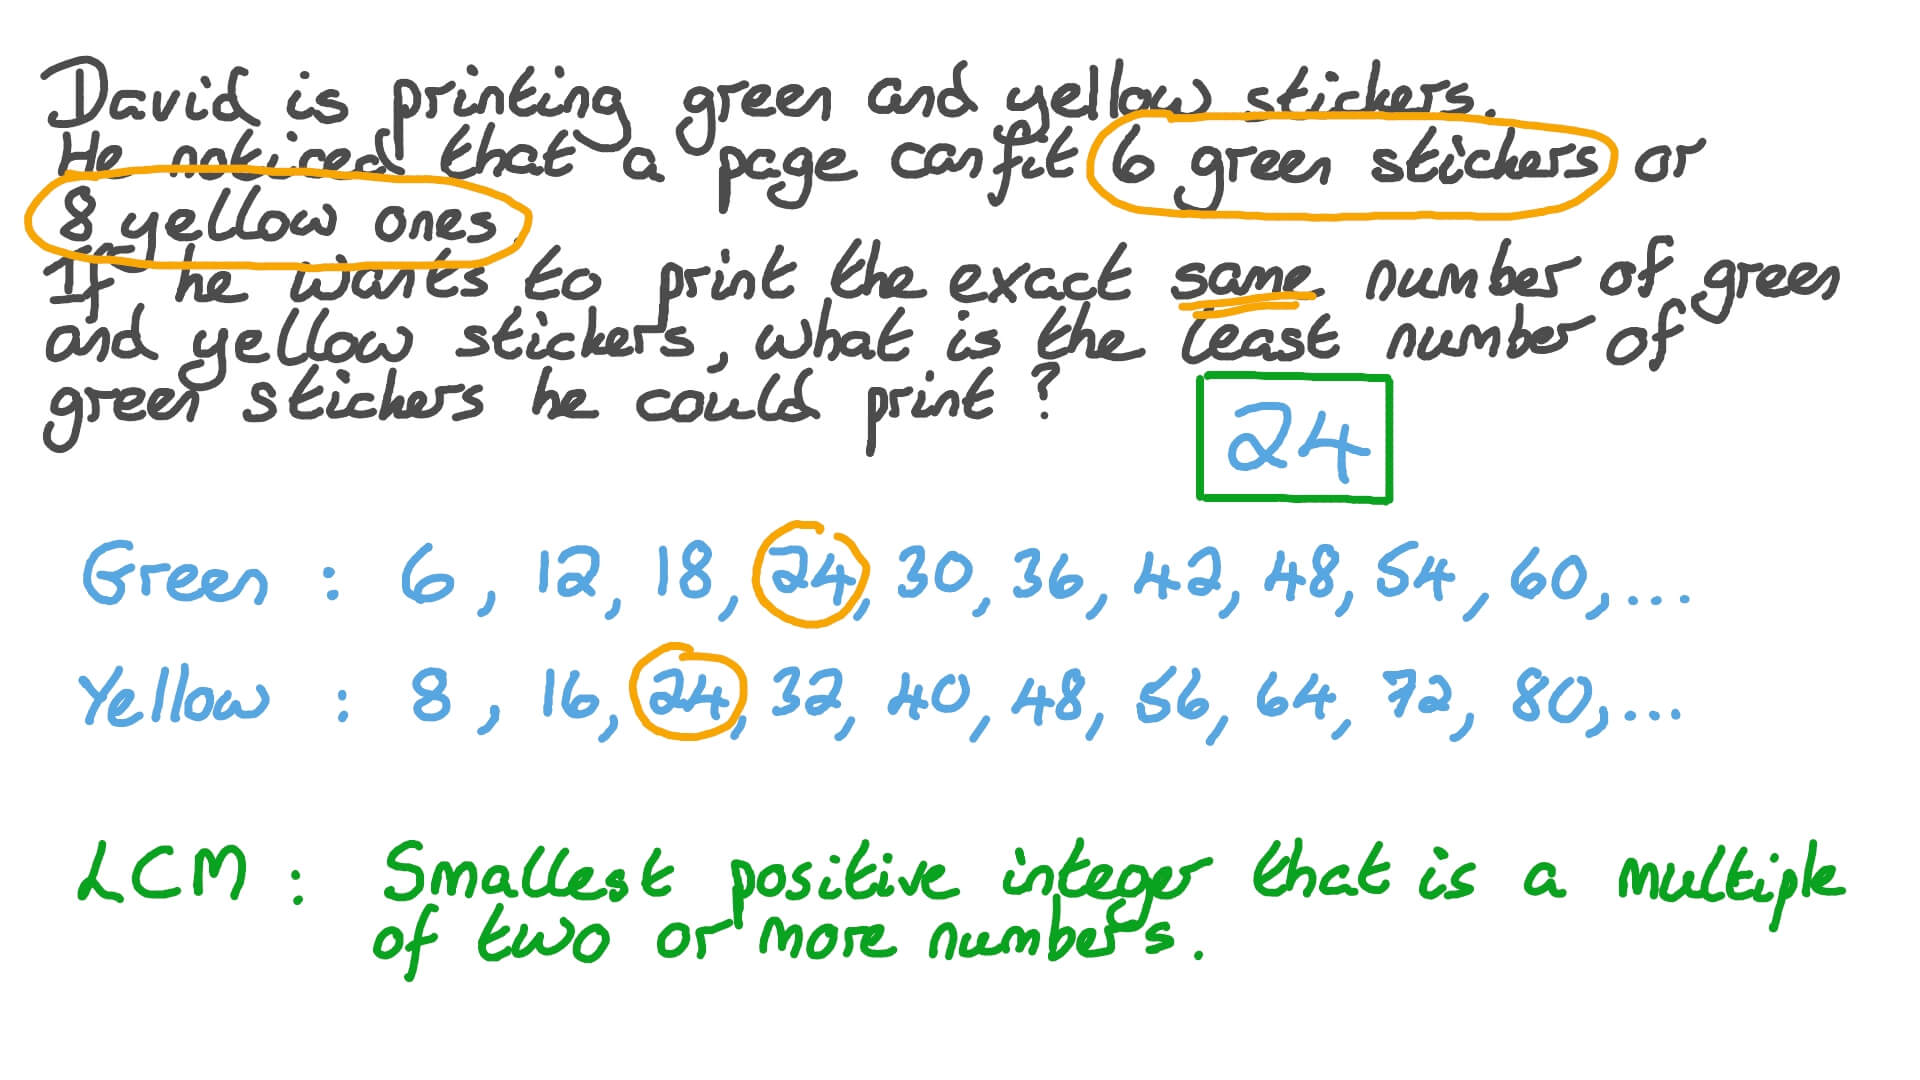 David is printing green and yellow stickers.
He noticed that a page can fit 6 green stickers or
8 yellow ones.
If he wants to print the exact same number of green
and yellow stickers, what is the least number of
green stickers he could print?
24
Green : 6, 12, 18, 24, 30, 36, 42, 48, 54, 60, ...
Yellow : 8, 16, 24, 32, 40, 48, 56, 64, 72, 80, ...
LCM : Smallest positive integer that is a multiple
of two or more numbers.